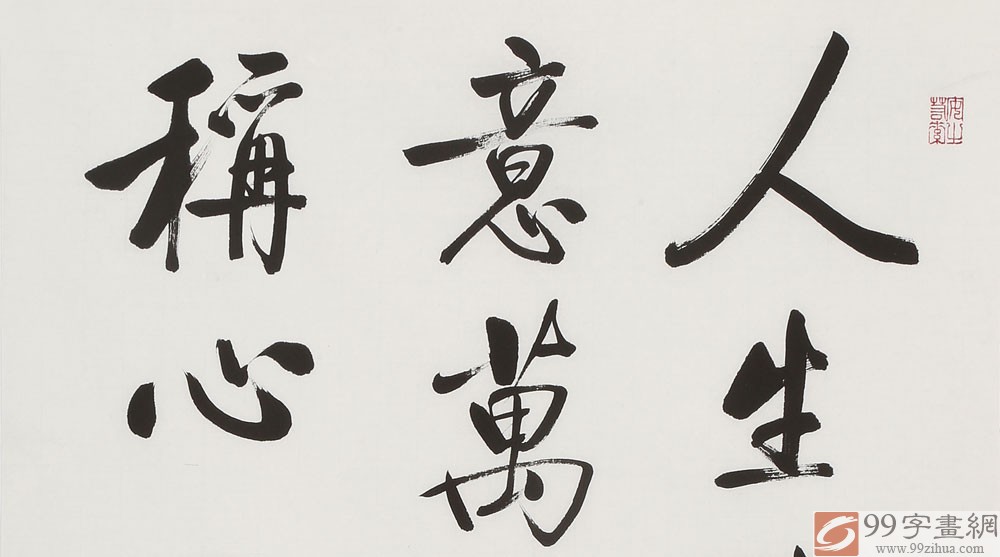 人生
意萬
稱心
99字畫網
www.99zihua.com